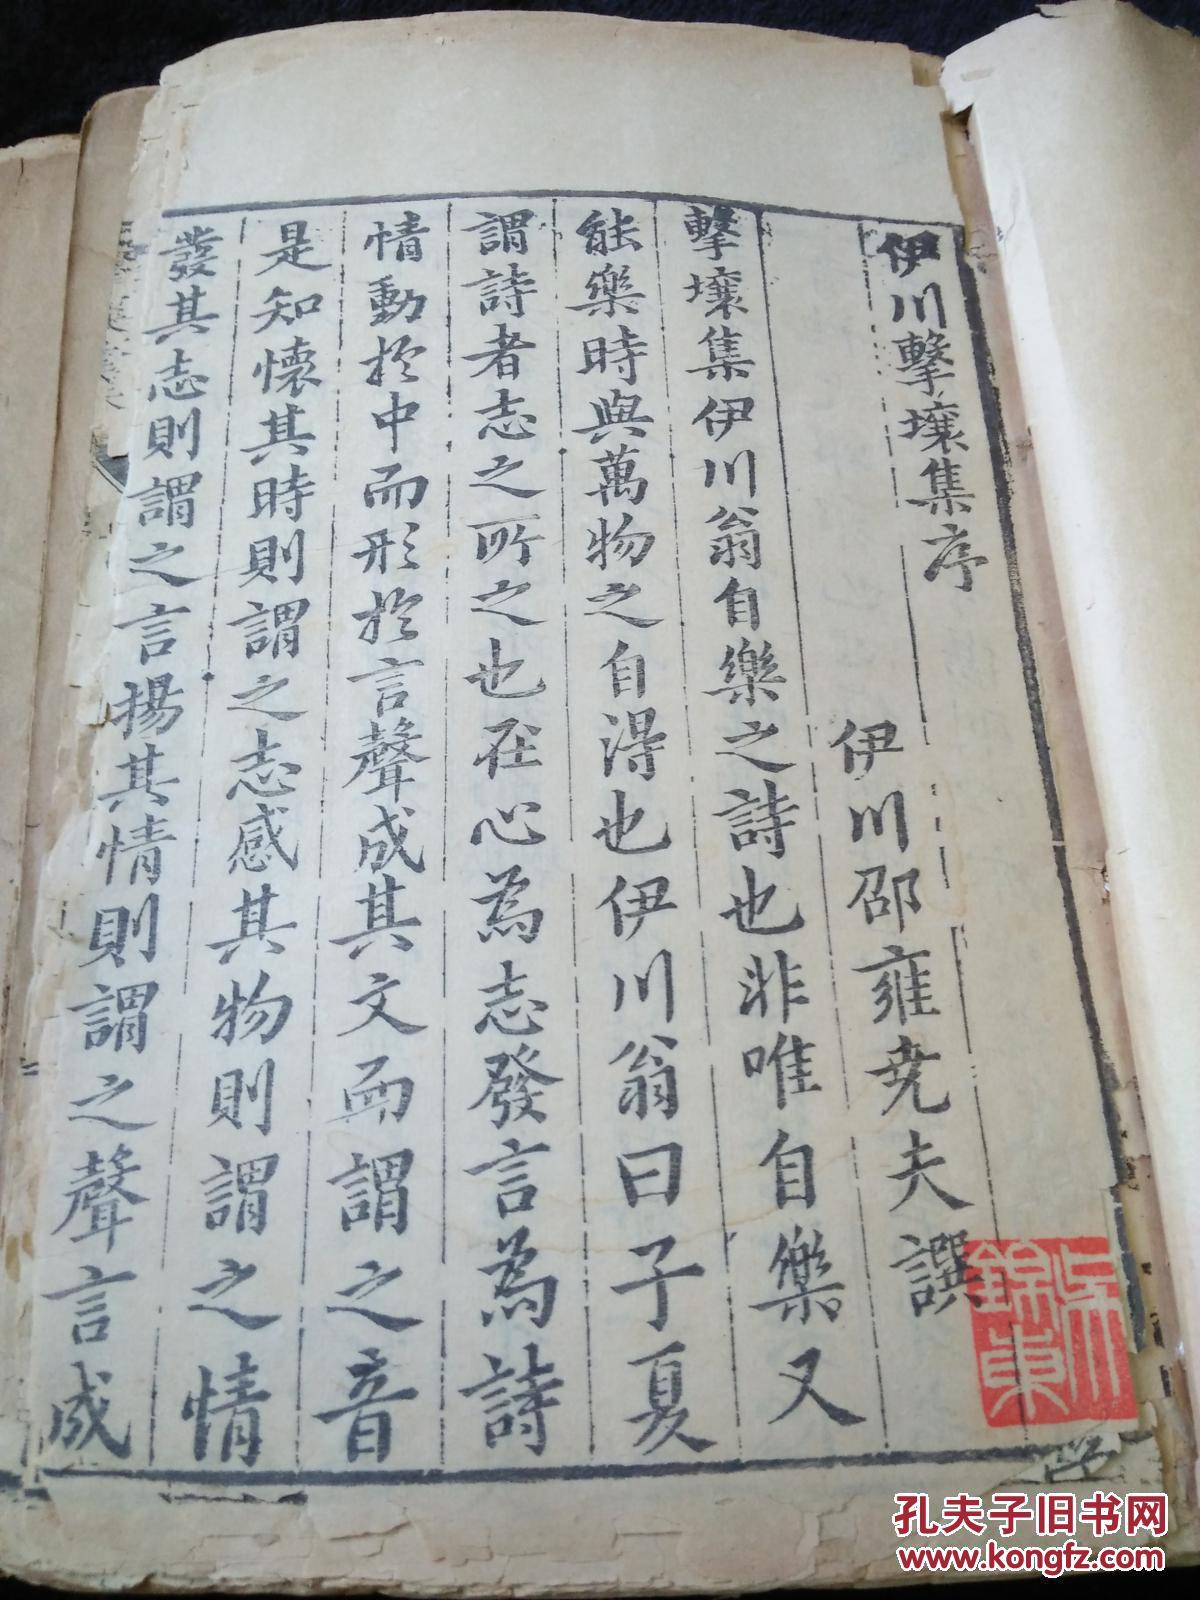 伊川擊壤集序
伊川邵雍堯夫譔
擊壤集伊川翁自樂之詩也非唯自樂又
能樂時與萬物之自淂也伊川翁曰子夏
謂詩者志之所之也在心為志發言為詩
情動扵中而形扵言聲成其文而謂之音
是知懷其時則謂之志感其物則謂之情
發其志則謂之言揚其情則謂之聲言成
錦東
孔夫子旧书网
www.kongfz.com